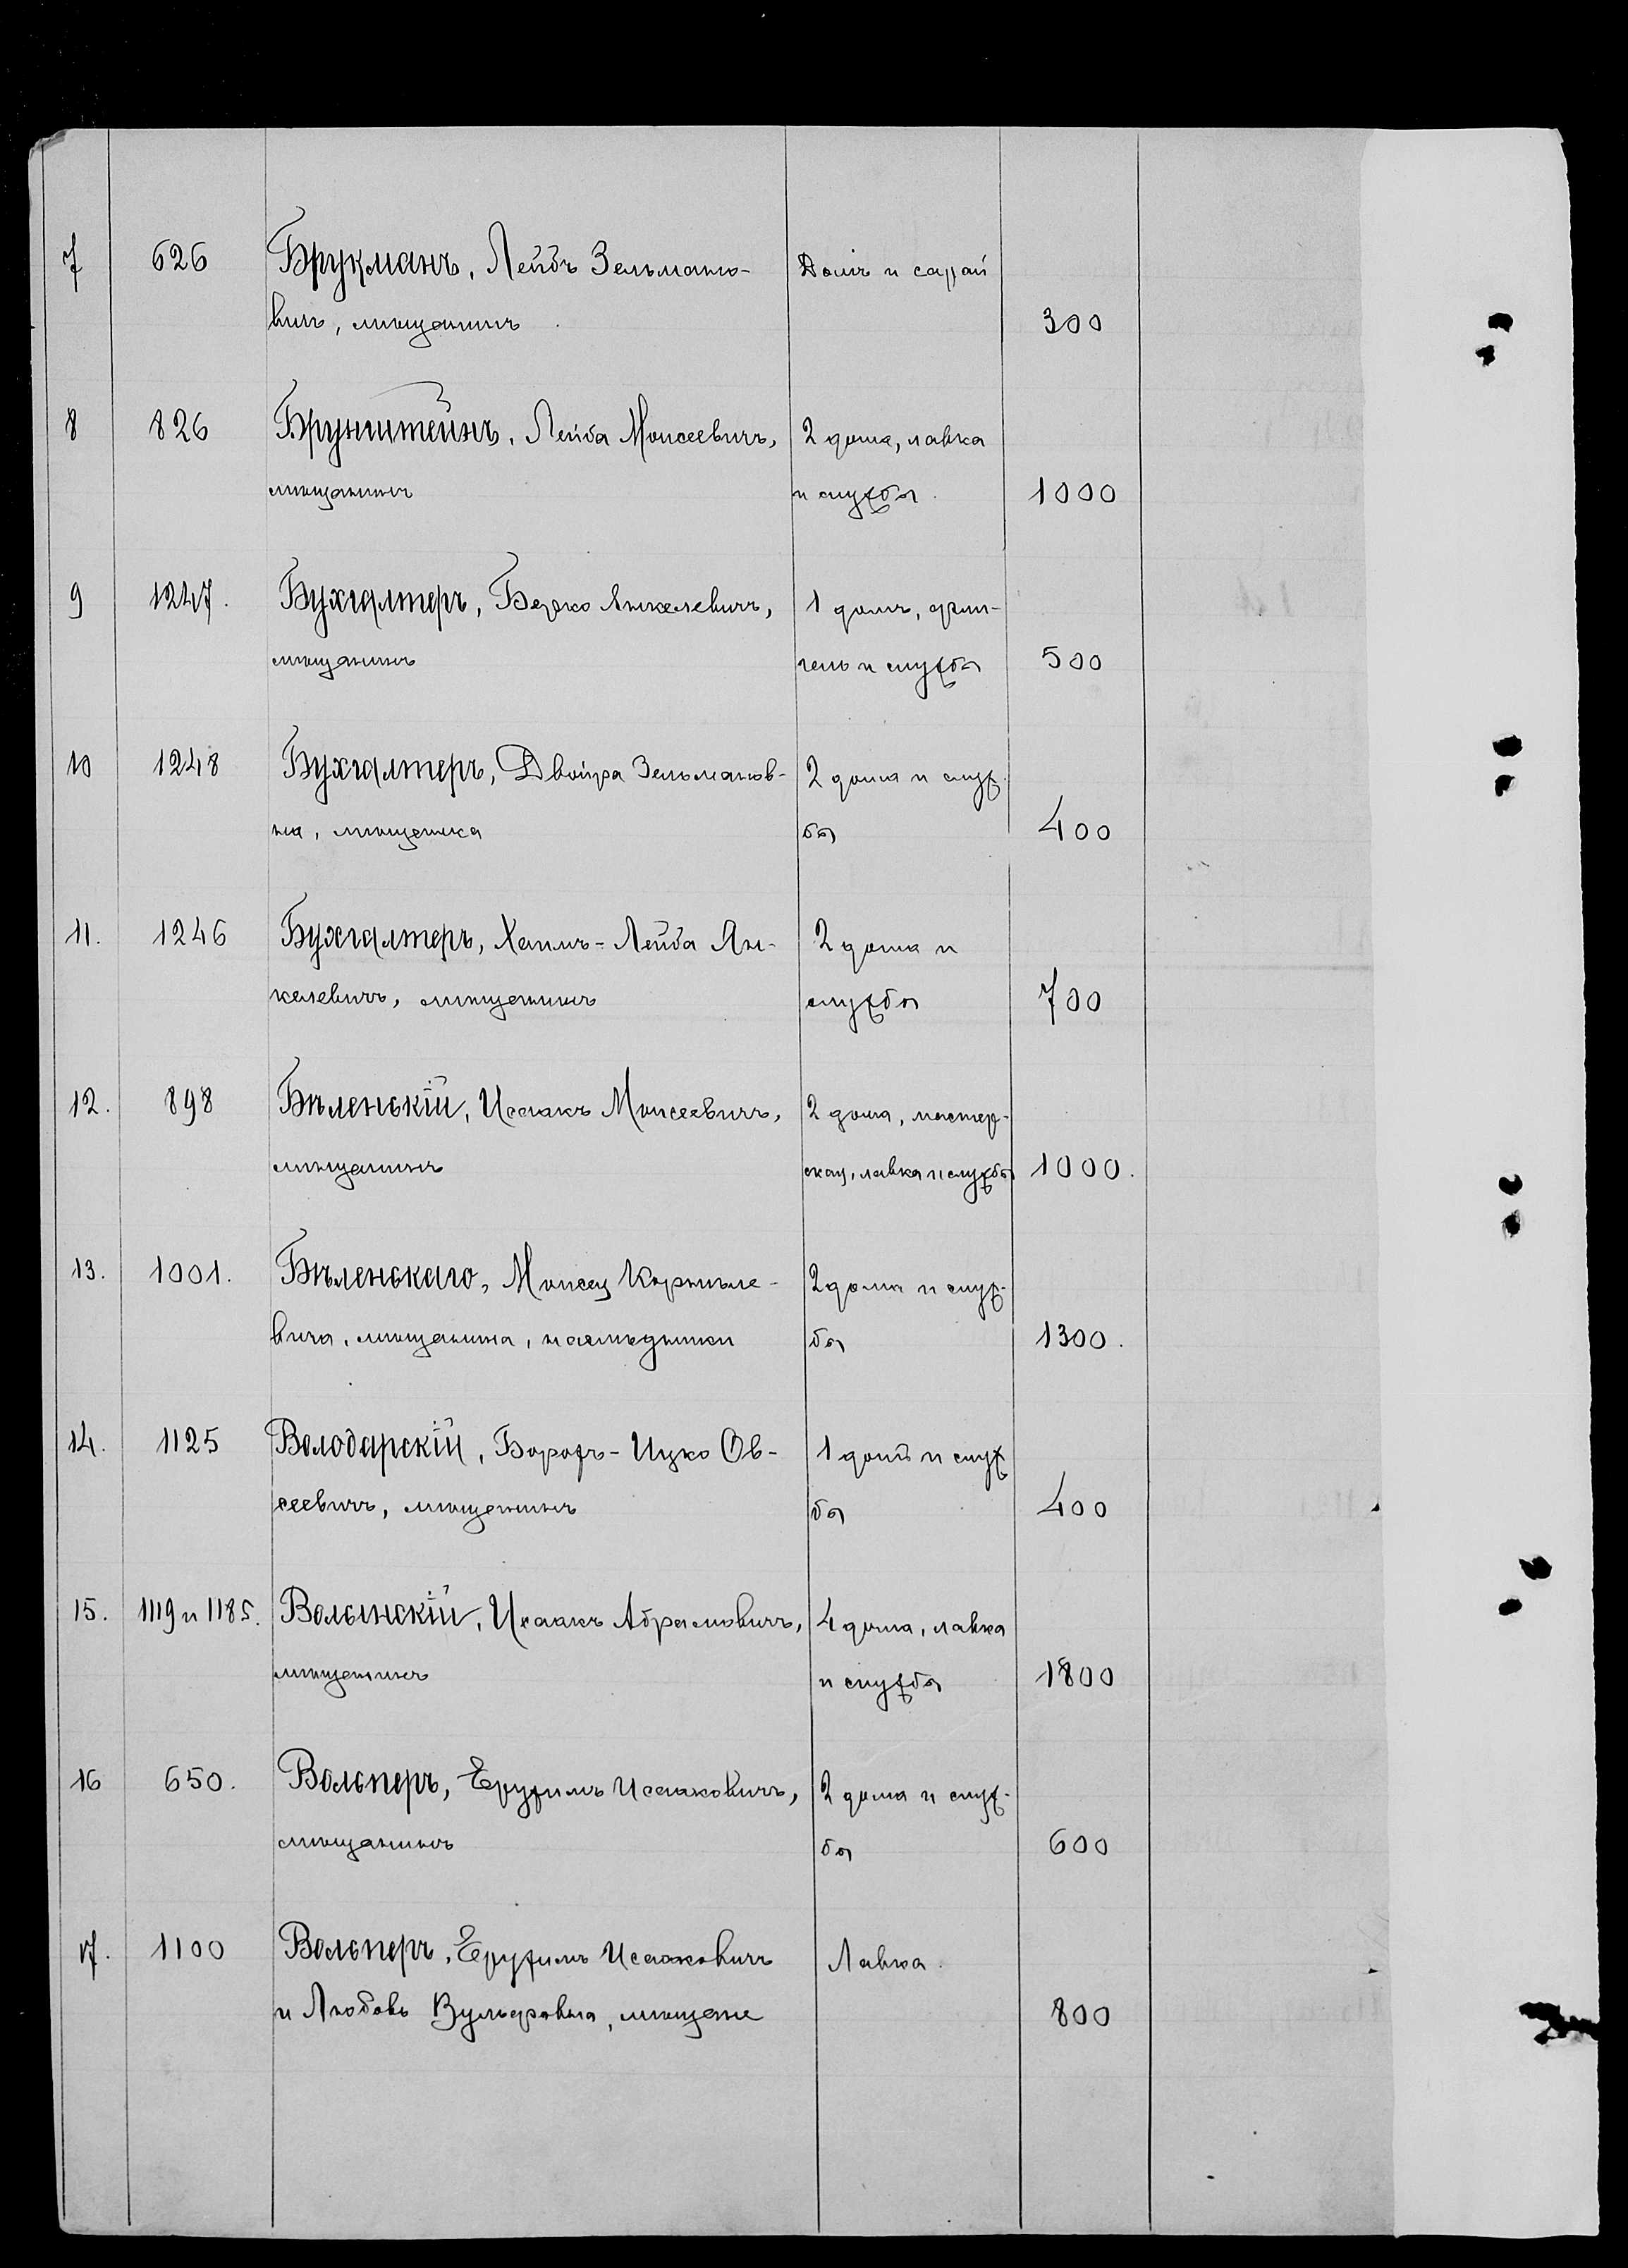 7 626 Брукманъ, Лейбъ Зельмано- Домъ и сарай
вичъ, мѣщанинъ 300
8 826 Брунштейнъ, Лейба Моисеевичъ, 2 дома, лавка
мѣщанинъ и службы. 1000
9 1247. Бухгалтеръ, Берко Янкелевичъ, 1 домъ, фли-
мѣщанинъ гель и службы 500
10 1248 Бухгалтеръ, Двойра Зельманов- 2 дома и служ-
на, мѣщанка бы 400
11. 1246 Бухгалтеръ, Хаимъ-Лейба Ян- 2 дома и
келевичъ, мѣщанинъ службы 700
12. 898 Бѣленькій, Исаакъ Моисеевичъ, 2 дома, мастер-
мѣщанинъ ская, лавка и службы 1000.
13. 1001. Бѣленькаго, Моисея 2 дома и служ-
вича, мѣщанина, наслѣдники бы 1300.
14. 1125 Володарскій, Борохъ-Ицко Ов- 1 домъ и служ
сеевичъ, мѣщанинъ бы 400
15. 1119 и 1185. Волынскій, Исаакъ Абрамовичъ, 4 дома, лавка
мѣщанинъ и службы 1800
16 650. Вольперъ, Ерухимъ Исааковичъ, 2 дома и служ-
мѣщанинъ бы 600
17. 1100 Вольперъ, Ерухимъ Исааковичъ Лавка.
и Любовь Вульфовна, мѣщане 800